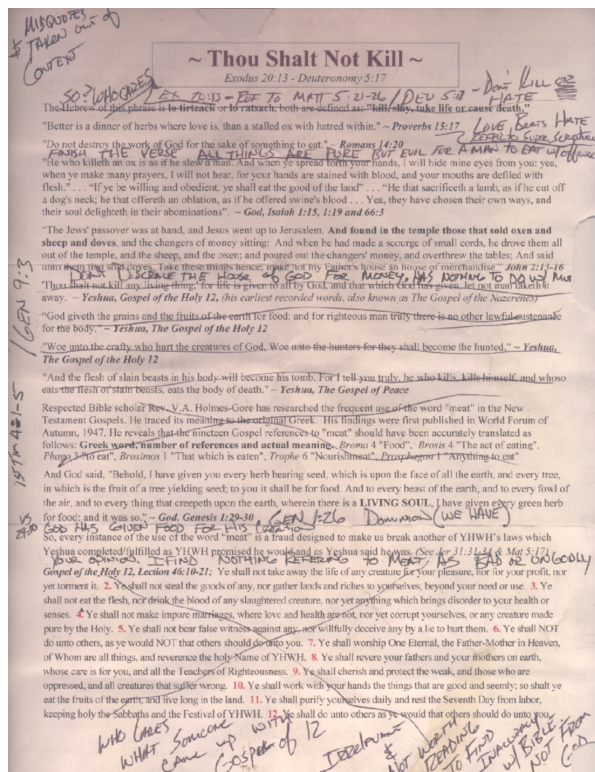 MISQUOTES
& TAKEN OUT OF
CONTENT
~ Thou Shalt Not Kill ~
Exodus 20:13 - Deuteronomy 5:17
SO? WHO CARES
EX 20:13 - REF TO MATT 5:21-26 / DEU 5:17 - DON'T KILL
HATE
The Hebrew of this phrase is lo tirtzack or lo ratsach, both are defined as: "kill/slay, take life or cause death."
"Better is a dinner of herbs where love is, than a stalled ox with hatred within." ~ Proverbs 15:17
LOVE BEATS HATE
REFER TO SUPR SCRIPTURE
"Do not destroy the work of God for the sake of something to eat." ~ Romans 14:20
FINISH THE VERSE ALL THINGS ARE PURE BUT EVIL FOR A MAN TO EAT W/ OFFENSE
"He who killeth an ox is as if he slew a man. And when ye spread forth your hands, I will hide mine eyes from you: yea,
when ye make many prayers, I will not hear, for your hands are stained with blood, and your mouths are defiled with
flesh." . . . "If ye be willing and obedient, ye shall eat the good of the land" . . . "He that sacrificeth a lamb, as if he cut off
a dog's neck; he that offereth an oblation, as if he offered swine's blood . . . Yea, they have chosen their own ways, and
their soul delighteth in their abominations". ~ God, Isaiah 1:15, 1:19 and 66:3
"The Jews' passover was at hand, and Jesus went up to Jerusalem. And found in the temple those that sold oxen and
sheep and doves, and the changers of money sitting: And when he had made a scourge of small cords, he drove them all
out of the temple, and the sheep, and the oxen; and poured out the changers' money, and overthrew the tables; And said
unto them that sold doves, Take these things hence; make not my Father's house an house of merchandise." John 2:13-16
DON'T DISGRACE THE HOUSE OF GOD FOR MONEY, HAS NOTHING TO DO W/
"Thou shalt not kill any living thing, for life is given to all by God, and that which God has given, let not man taketh it
away. ~ Yeshua, Gospel of the Holy 12, (his earliest recorded words, also known as The Gospel of the Nazerenes)
GEN 9:3
"God giveth the grains and the fruits of the earth for food: and for righteous man truly there is no other lawful sustenance
for the body." ~ Yeshua, The Gospel of the Holy 12
"Woe unto the crafty who hurt the creatures of God. Woe unto the hunters for they shall become the hunted." ~ Yeshua,
The Gospel of the Holy 12
"And the flesh of slain beasts in his body will become his tomb. For I tell you truly, he who kills, kills himself, and whoso
eats the flesh of slain beasts, eats the body of death." ~ Yeshua, The Gospel of Peace
1st Tim 4:1-5
Respected Bible scholar Rev. V.A. Holmes-Gore has researched the frequent use of the word "meat" in the New
Testament Gospels. He traced its meaning to the original Greek. His findings were first published in World Forum of
Autumn, 1947. He reveals that the nineteen Gospel references to "meat" should have been accurately translated as
follows: Greek word, number of references and actual meaning. Broma 4 "Food". Brosis 4 "The act of eating".
Phago 3 "to eat", Brosimos 1 "That which is eaten", Trophe 6 "Nourishment", Prosphagon 1 "Anything to eat"
And God said, "Behold, I have given you every herb bearing seed, which is upon the face of all the earth, and every tree,
in which is the fruit of a tree yielding seed; to you it shall be for food. And to every beast of the earth, and to every fowl of
the air, and to every thing that creepeth upon the earth, wherein there is a LIVING SOUL, I have given every green herb
for food: and it was so." ~ God, Genesis 1:29-30
GEN 1:26 DOMINION (WE HAVE)
VS 29-30
GOD HAS GIVEN FOOD FOR HIS
So, every instance of the use of the word "meat" is a fraud designed to make us break another of YHWH's laws which
Yeshua completed/fulfilled as YHWH promised he would and as Yeshua said he was. (See Jer 31:31-34 & Mat 5:17)
YOUR OPINION. I FIND NOTHING REFERING TO MEAT, AS BAD OR UNGODLY
Gospel of the Holy 12, Lection 46:10-21; Ye shall not take away the life of any creature for your pleasure, nor for your profit, nor
yet torment it. 2. Ye shall not steal the goods of any, nor gather lands and riches to yourselves, beyond your need or use. 3. Ye
shall not eat the flesh, nor drink the blood of any slaughtered creature, nor yet anything which brings disorder to your health or
senses. 4. Ye shall not make impure marriages, where love and health are not, nor yet corrupt yourselves, or any creature made
pure by the Holy. 5. Ye shall not bear false witness against any, nor willfully deceive any by a lie to hurt them. 6. Ye shall NOT
do unto others, as ye would NOT that others should do unto you. 7. Ye shall worship One Eternal, the Father-Mother in Heaven,
of Whom are all things, and reverence the holy Name of YHWH. 8. Ye shall revere your fathers and your mothers on earth,
whose care is for you, and all the Teachers of Righteousness. 9. Ye shall cherish and protect the weak, and those who are
oppressed, and all creatures that suffer wrong. 10. Ye shall work with your hands the things that are good and seemly; so shalt ye
eat the fruits of the earth, and live long in the land. 11. Ye shall purify yourselves daily and rest the Seventh Day from labor,
keeping holy the Sabbaths and the Festival of YHWH. 12. Ye shall do unto others as ye would that others should do unto you.
WHO CARES
WHAT SOMEONE
CAME UP WITH
GOSPEL OF 12
IRRELEVANT
& NOT WORTH
READING
TO FIND
INACCURACY
W/ BIBLE
NOT FROM
GOD